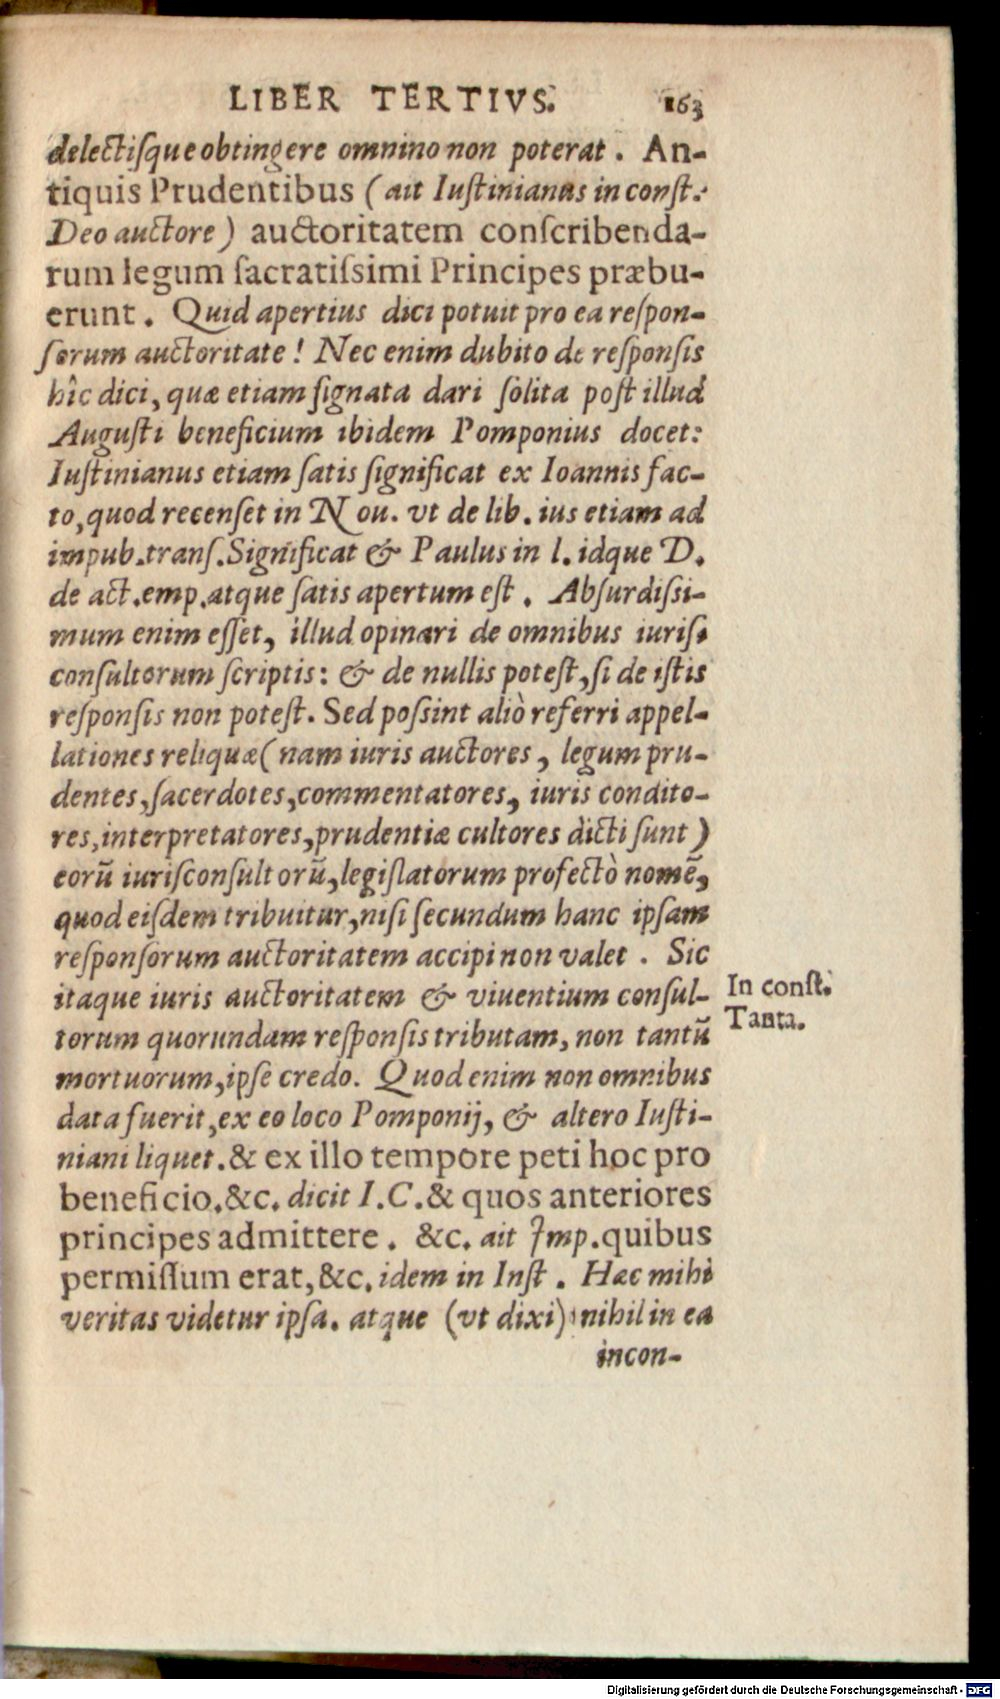 LIBER TERTIVS. 163
delectiſque obtingere omnino non poterat. An-
tiquis Prudentibus (ait Iuſtinianus in conſt.
Deo auctore) auctoritatem conſcribenda-
rum legum ſacratiſsimi Principes præbu-
erunt. Quid apertius dici potuit pro ea reſpon-
ſorum auctoritate! Nec enim dubito de reſponſis
hîc dici, quæ etiam ſignata dari ſolita poſt illud
Auguſti beneficium ibidem Pomponius docet:
Iuſtinianus etiam ſatis ſignificat ex Ioannis fac-
to, quod recenſet in Nou. vt de lib. ius etiam ad
impub. tranſ. Significat & Paulus in l. idque D.
de act. emp. atque ſatis apertum eſt. Abſurdiſsi-
mum enim eſſet, illud opinari de omnibus iuriſ-
conſultorum ſcriptis: & de nullis poteſt, ſi de iſtis
reſponſis non poteſt. Sed poſsint aliò referri appel-
lationes reliquæ (nam iuris auctores, legum pru-
dentes, ſacerdotes, commentatores, iuris condito-
res, interpretatores, prudentiæ cultores dicti ſunt)
eorũ iuriſconſultorũ, legiſlatorum profectò nomẽ,
quod eiſdem tribuitur, niſi ſecundum hanc ipſam
reſponſorum auctoritatem accipi non valet. Sic
itaque iuris auctoritatem & viuentium conſul-
torum quorundam reſponſis tributam, non tantũ
mortuorum, ipſe credo. Quod enim non omnibus
data fuerit, ex eo loco Pomponij, & altero Iuſti-
niani liquet. & ex illo tempore peti hoc pro
beneficio. &c. dicit I.C. & quos anteriores
principes admittere. &c. ait Imp. quibus
permiſſum erat, &c. idem in Inſt. Hæc mihi
veritas videtur ipſa. atque (vt dixi) nihil in ea
incon-
In conſt.
Tanta.
Digitalisierung gefördert durch die Deutsche Forschungsgemeinschaft - DFG